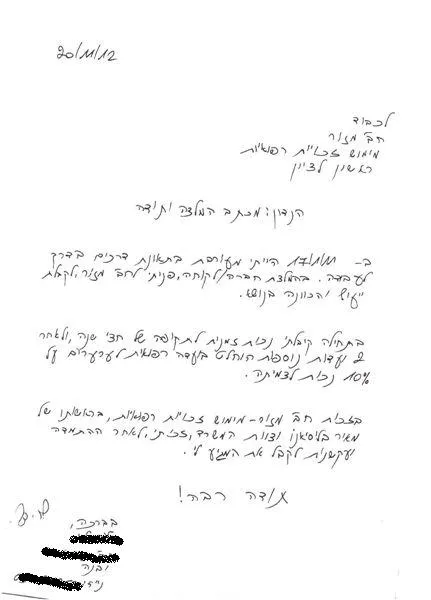 20/11/12
לכבוד
חב' מזור
מימוש זכויות רפואיות
ראשון לציון
הנדון: מכתב המלצה ותודה
ב- 17/1/11 הייתי מעורבת בתאונת דרכים בדרך
לעבודה. בהמלצת חברה/לקוחה, פניתי לחב' מזור, לקבלת
ייעוץ והכוונה בנושא.
בתחילה קיבלתי נכות זמנית לתקופה של חצי שנה, ולאחר
2 ועדות נוספות הוחלט בועדה רפואית לעררים על
10% נכות לצמיתה.
בזכות חב' מזור - מימוש זכויות רפואיות, בראשותו של
מאיר בליסיאנו וצוות המשרד, זכיתי, לאחר התמדה
ועקשנות לקבל את המגיע לי.
תודה רבה!
בברכה,
יבנה